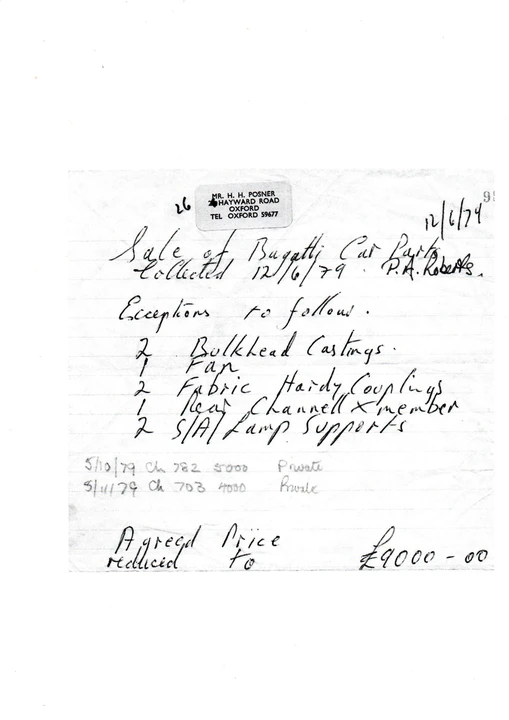 26
MR. H. H. POSNER
HAYWARD ROAD
OXFORD
TEL OXFORD 59677
12/6/79
Sale of Bugatti Car Parts
Collected 12/6/79. P.A. Roberts.
Exceptions to follow.
2 Bulkhead Castings.
1 Fan
2 Fabric Hardy Couplings
1 Rear Channell X member
2 S/A/ Lamp Supports
5/10/79 Ch 782 5000 Private
5/11/79 Ch 703 4000 Private
Agreed Price
reduced to £9000-00